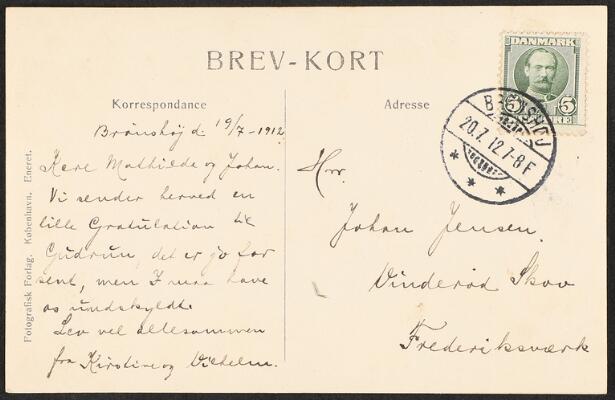 BREV-KORT
Korrespondance
Adresse
DANMARK
5 5
ØRE
BRØNSHØJ
20.7.12.7-8 F
Brønshøj d. 19/7-1912
Kære Mathilde og Johan.
Vi sender herved en
lille Gratulation til
Gudrun, det er jo for
sent, men I maa have
os undskyldt.
Lev vel allesammen
fra Kirstine og Vilhelm.
Hrr.
Johan Jensen.
Vinderød Skov
Frederiksværk
Fotografisk Forlag. København. Eneret.